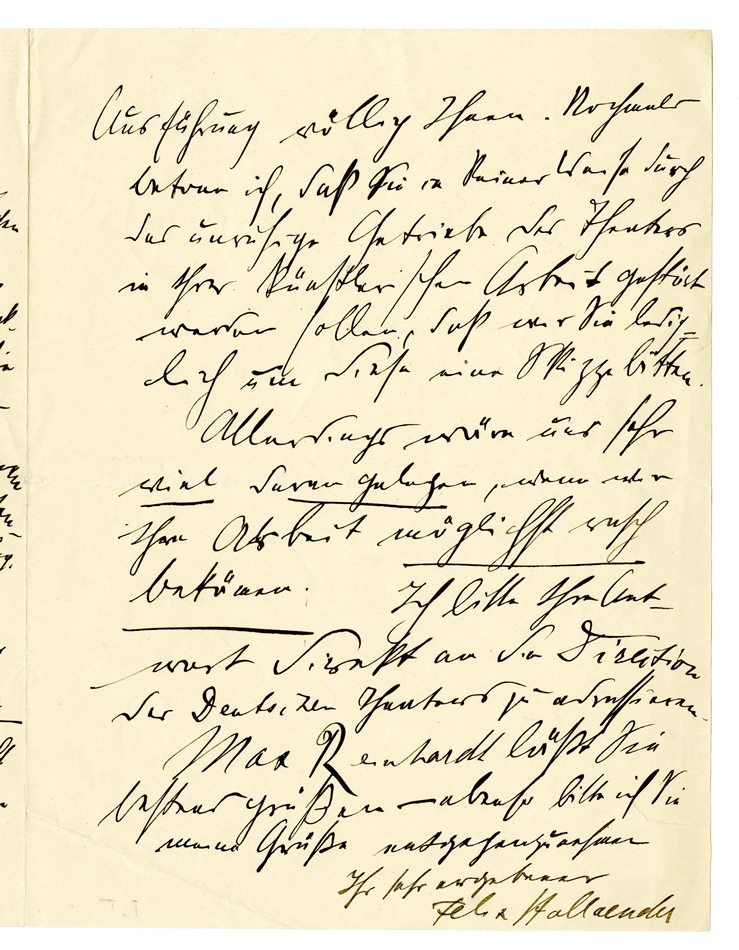 Ausführung völlig Ihnen. Nochmals
betone ich, daß Sie in keiner Weise durch
das unruhige Getriebe des Theaters
in Ihrer künstlerischen Arbeit gestört
werden sollen, daß wir Sie ledig-
lich um diese eine Skizze bitten.
Allerdings wäre uns sehr
viel daran gelegen, wenn wir
Ihre Arbeit möglichst rasch
bekämen. Ich bitte Ihre Ant-
wort direkt an die Direction
des Deutschen Theaters zu adressieren.
Max Reinhardt läßt Sie
bestens grüßen – ebenso bitte ich Sie
meine Grüße entgegenzunehmen
Ihr sehr ergebener
Felix Hollaender